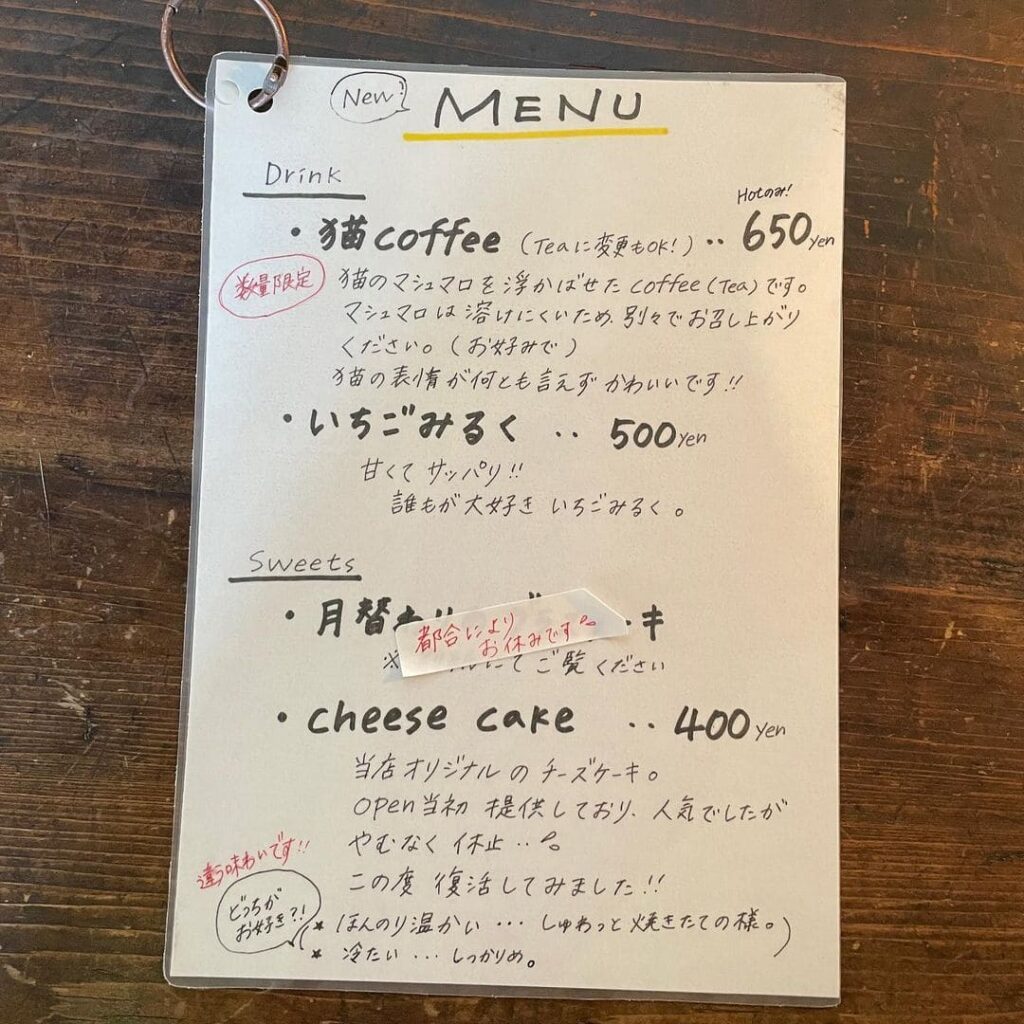 New!
MENU
Drink
Hotのみ!
・猫coffee (Teaに変更もOK!) ‥ 650yen
数量限定
猫のマシュマロを浮かばせた coffee(Tea)です。
マシュマロは溶けにくいため、別々でお召し上がり
ください。(お好みで)
猫の表情が何とも言えずかわいいです!!
・いちごみるく ‥ 500yen
甘くてサッパリ!!
誰もが大好き いちごみるく。
Sweets
・月替わり キ
都合により
お休みです
※ にてご覧ください
・cheese cake ‥ 400yen
当店オリジナルのチーズケーキ。
open当初 提供しており、人気でしたが
やむなく休止‥
この度 復活してみました!!
違う味わいです!!
どっちが
お好き?!
(* ほんのり温かい … しゅわっと焼きたての様。)
* 冷たい … しっかりめ。